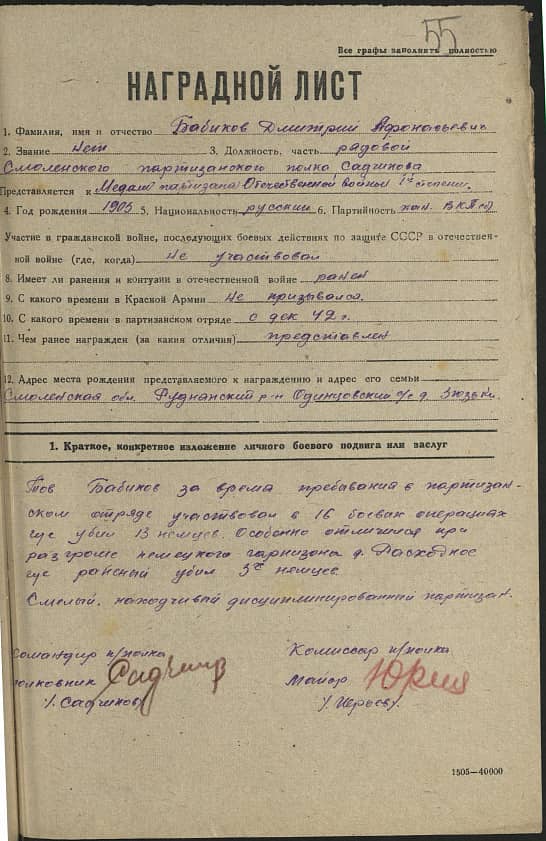 55
Все графы заполнить полностью
НАГРАДНОЙ ЛИСТ
1. Фамилия, имя и отчество Бабиков Дмитрий Афонасьевич
2. Звание нет 3. Должность, часть рядовой
Смоленского партизанского полка Садчикова
Представляется к Медали партизана Отечественной войны 1й степени.
4. Год рождения 1905 5. Национальность русский 6. Партийность кан. ВКП(б)
Участие в гражданской войне, последующих боевых действиях по защите СССР в отечествен-
ной войне (где, когда) не участвовал
8. Имеет ли ранения и контузии в отечественной войне ранен
9. С какого времени в Красной Армии не призывался.
10. С какого времени в партизанском отряде с дек 42 г.
11. Чем ранее награжден (за какия отличия) представлен
12. Адрес места рождения представляемого к награждению и адрес его семьи
Смоленская обл. Руднянский р-н Одинцовский с/с д. Зюзьки.
1. Краткое, конкретное изложение личного боевого подвига или заслуг
Тов Бабиков за время пребывания в партизан-
ском отряде участвовал в 16 боевых операциях
где убил 13 немцев. Особенно отличился при
разгроме немецкого гарнизона д. Расходное
где раненый убил 3х немцев.
Смелый, находчивый дисциплинированный партизан.
Командир п/полка Комиссар п/полка
полковник Садчиков Майор
/. Садчиков/
1505—40000